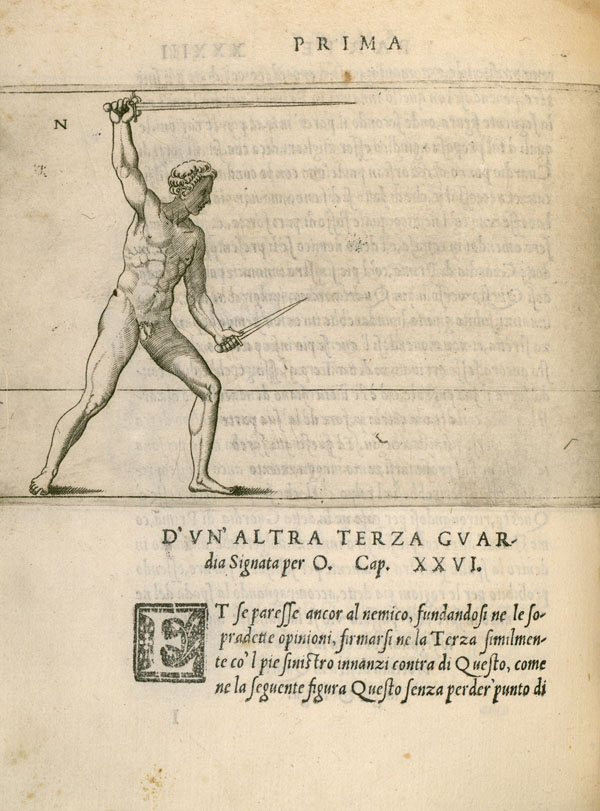 PRIMA
N
D'VN' ALTRA TERZA GVAR-
dia Signata per O. Cap. XXVI.
ET se paresse ancor al nemico, fundandosi ne le so-
pradette opinioni, firmarsi ne la Terza similmen-
te co'l pie sinistro innanzi contra di Questo, come
ne la seguente figura Questo senza perder' punto di
I